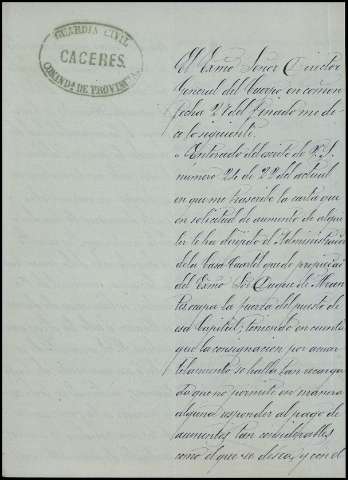 GUARDIA CIVIL
CACERES.
COMANDA. DE PROVINCIA
El Exmo Señor Director
General del Cuerpo en comon
fecha 27 del finado me di
ce lo siguiente.
"Enterado del escrito de V. S.
numero 24 de 22 del actual
en que me trascribe la carta que
en solicitud de aumento de alqui
ler le ha dirijido el Administrador
de la Casa Cuartel que de propiedad
del Exmo Sor Duque de Abran
tes, ocupa la fuerza del puesto de
esa Capital; teniendo en cuenta
que la consignacion por acuar
telamiento se halla tan recarga
da que no permite en manera
alguna responder al pago de
aumentos tan considerables
como el que se desea, y con el